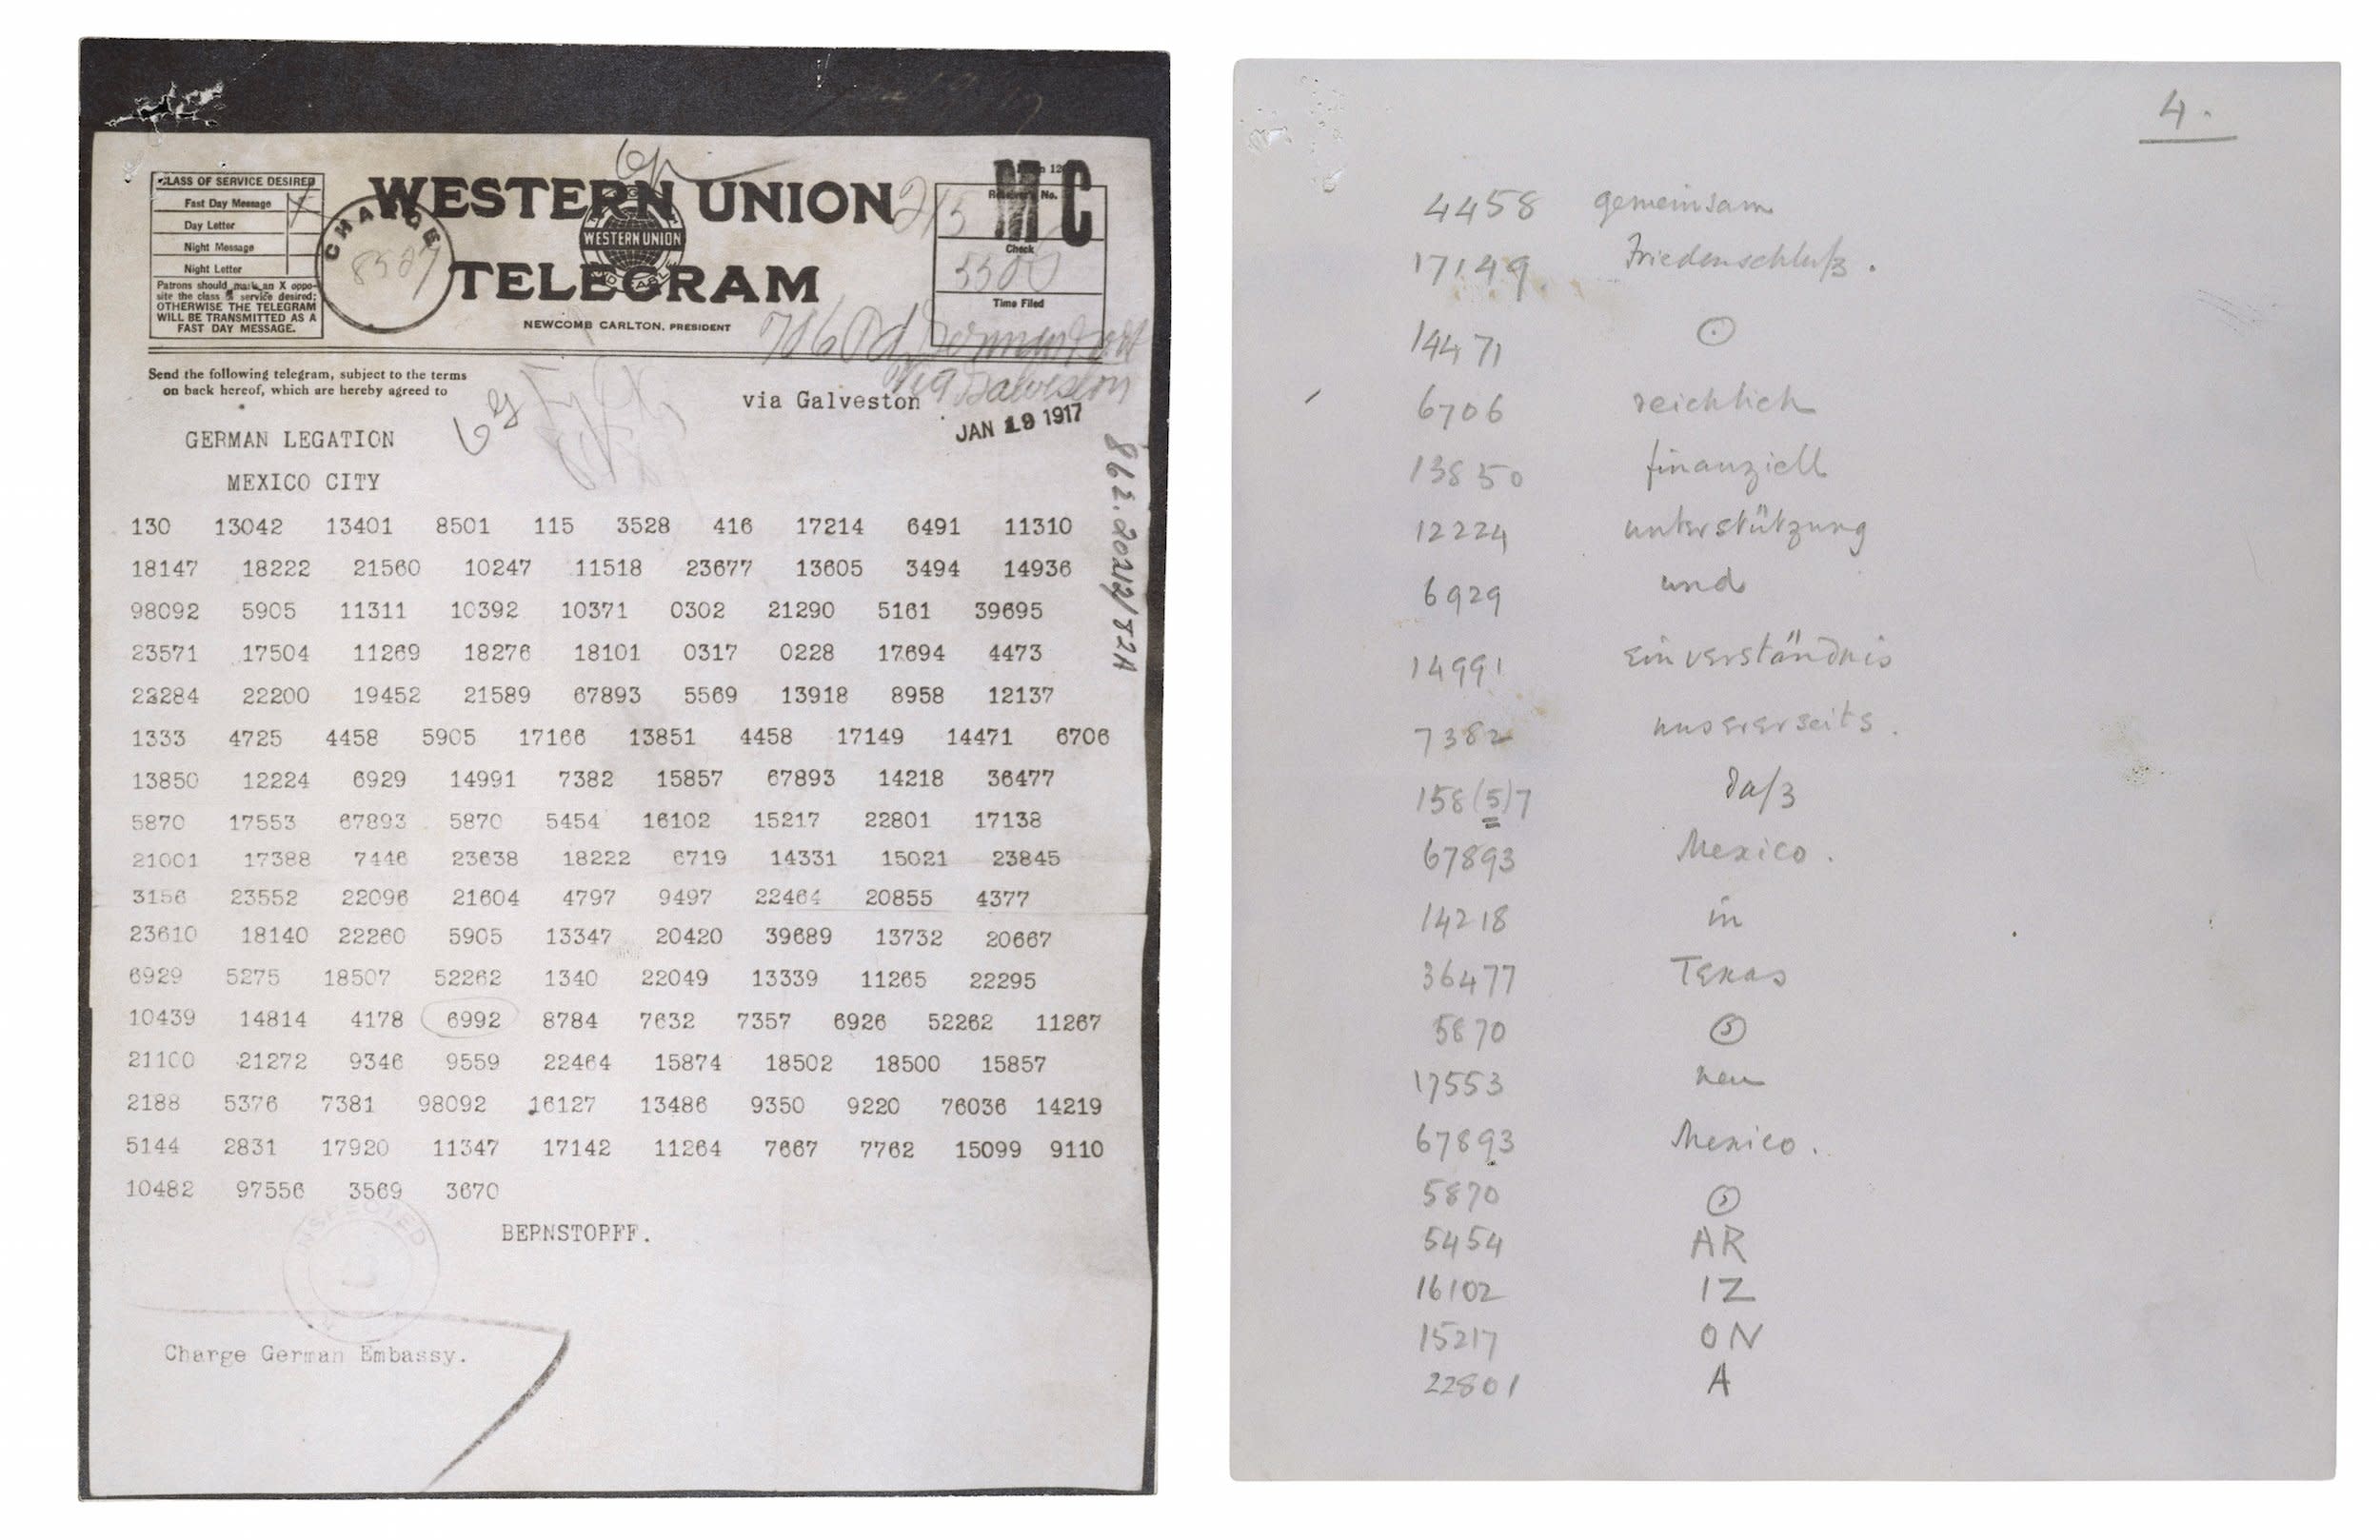 CLASS OF SERVICE DESIRED
Fast Day Message X
Day Letter
Night Message
Night Letter
Patrons should mark an X oppo-
site the class of service desired;
OTHERWISE THE TELEGRAM
WILL BE TRANSMITTED AS A
FAST DAY MESSAGE.
CHARGE
WESTERN UNION
WESTERN UNION
TELEGRAM
NEWCOMB CARLTON, PRESIDENT
215
MC
Receiver's No.
Check
Time Filed
Send the following telegram, subject to the terms
on back hereof, which are hereby agreed to
via Galveston
via Galveston
JAN 19 1917
862.20212/82A
GERMAN LEGATION
MEXICO CITY
130 13042 13401 8501 115 3528 416 17214 6491 11310
18147 18222 21560 10247 11518 23677 13605 3494 14936
98092 5905 11311 10392 10371 0302 21290 5161 39695
23571 17504 11269 18276 18101 0317 0228 17694 4473
22284 22200 19452 21589 67893 5569 13918 8958 12137
1333 4725 4458 5905 17166 13851 4458 17149 14471 6706
13850 12224 6929 14991 7382 15857 67893 14218 36477
5870 17553 67893 5870 5454 16102 15217 22801 17138
21001 17388 7446 23638 18222 6719 14331 15021 23845
3156 23552 22096 21604 4797 9497 22464 20855 4377
23610 18140 22260 5905 13347 20420 39689 13732 20667
6929 5275 18507 52262 1340 22049 13339 11265 22295
10439 14814 4178 6992 8784 7632 7357 6926 52262 11267
21100 21272 9346 9559 22464 15874 18502 18500 15857
2188 5376 7381 98092 16127 13486 9350 9220 76036 14219
5144 2831 17920 11347 17142 11264 7667 7762 15099 9110
10482 97556 3569 3670
BERNSTORFF.
INSPECTED
Charge German Embassy.
4.
4458 gemeinsam
17149 Friedenschluß.
14471 ⊙
6706 reichlich
13850 finanziell
12224 unterstützung
6929 und
14991 einverständnis
7382 unsererseits.
158(5)7 daß
67893 Mexico.
14218 in
36477 Texas
5870 ,
17553 neu
67893 Mexico.
5870 ,
5454 AR
16102 IZ
15217 ON
22801 A